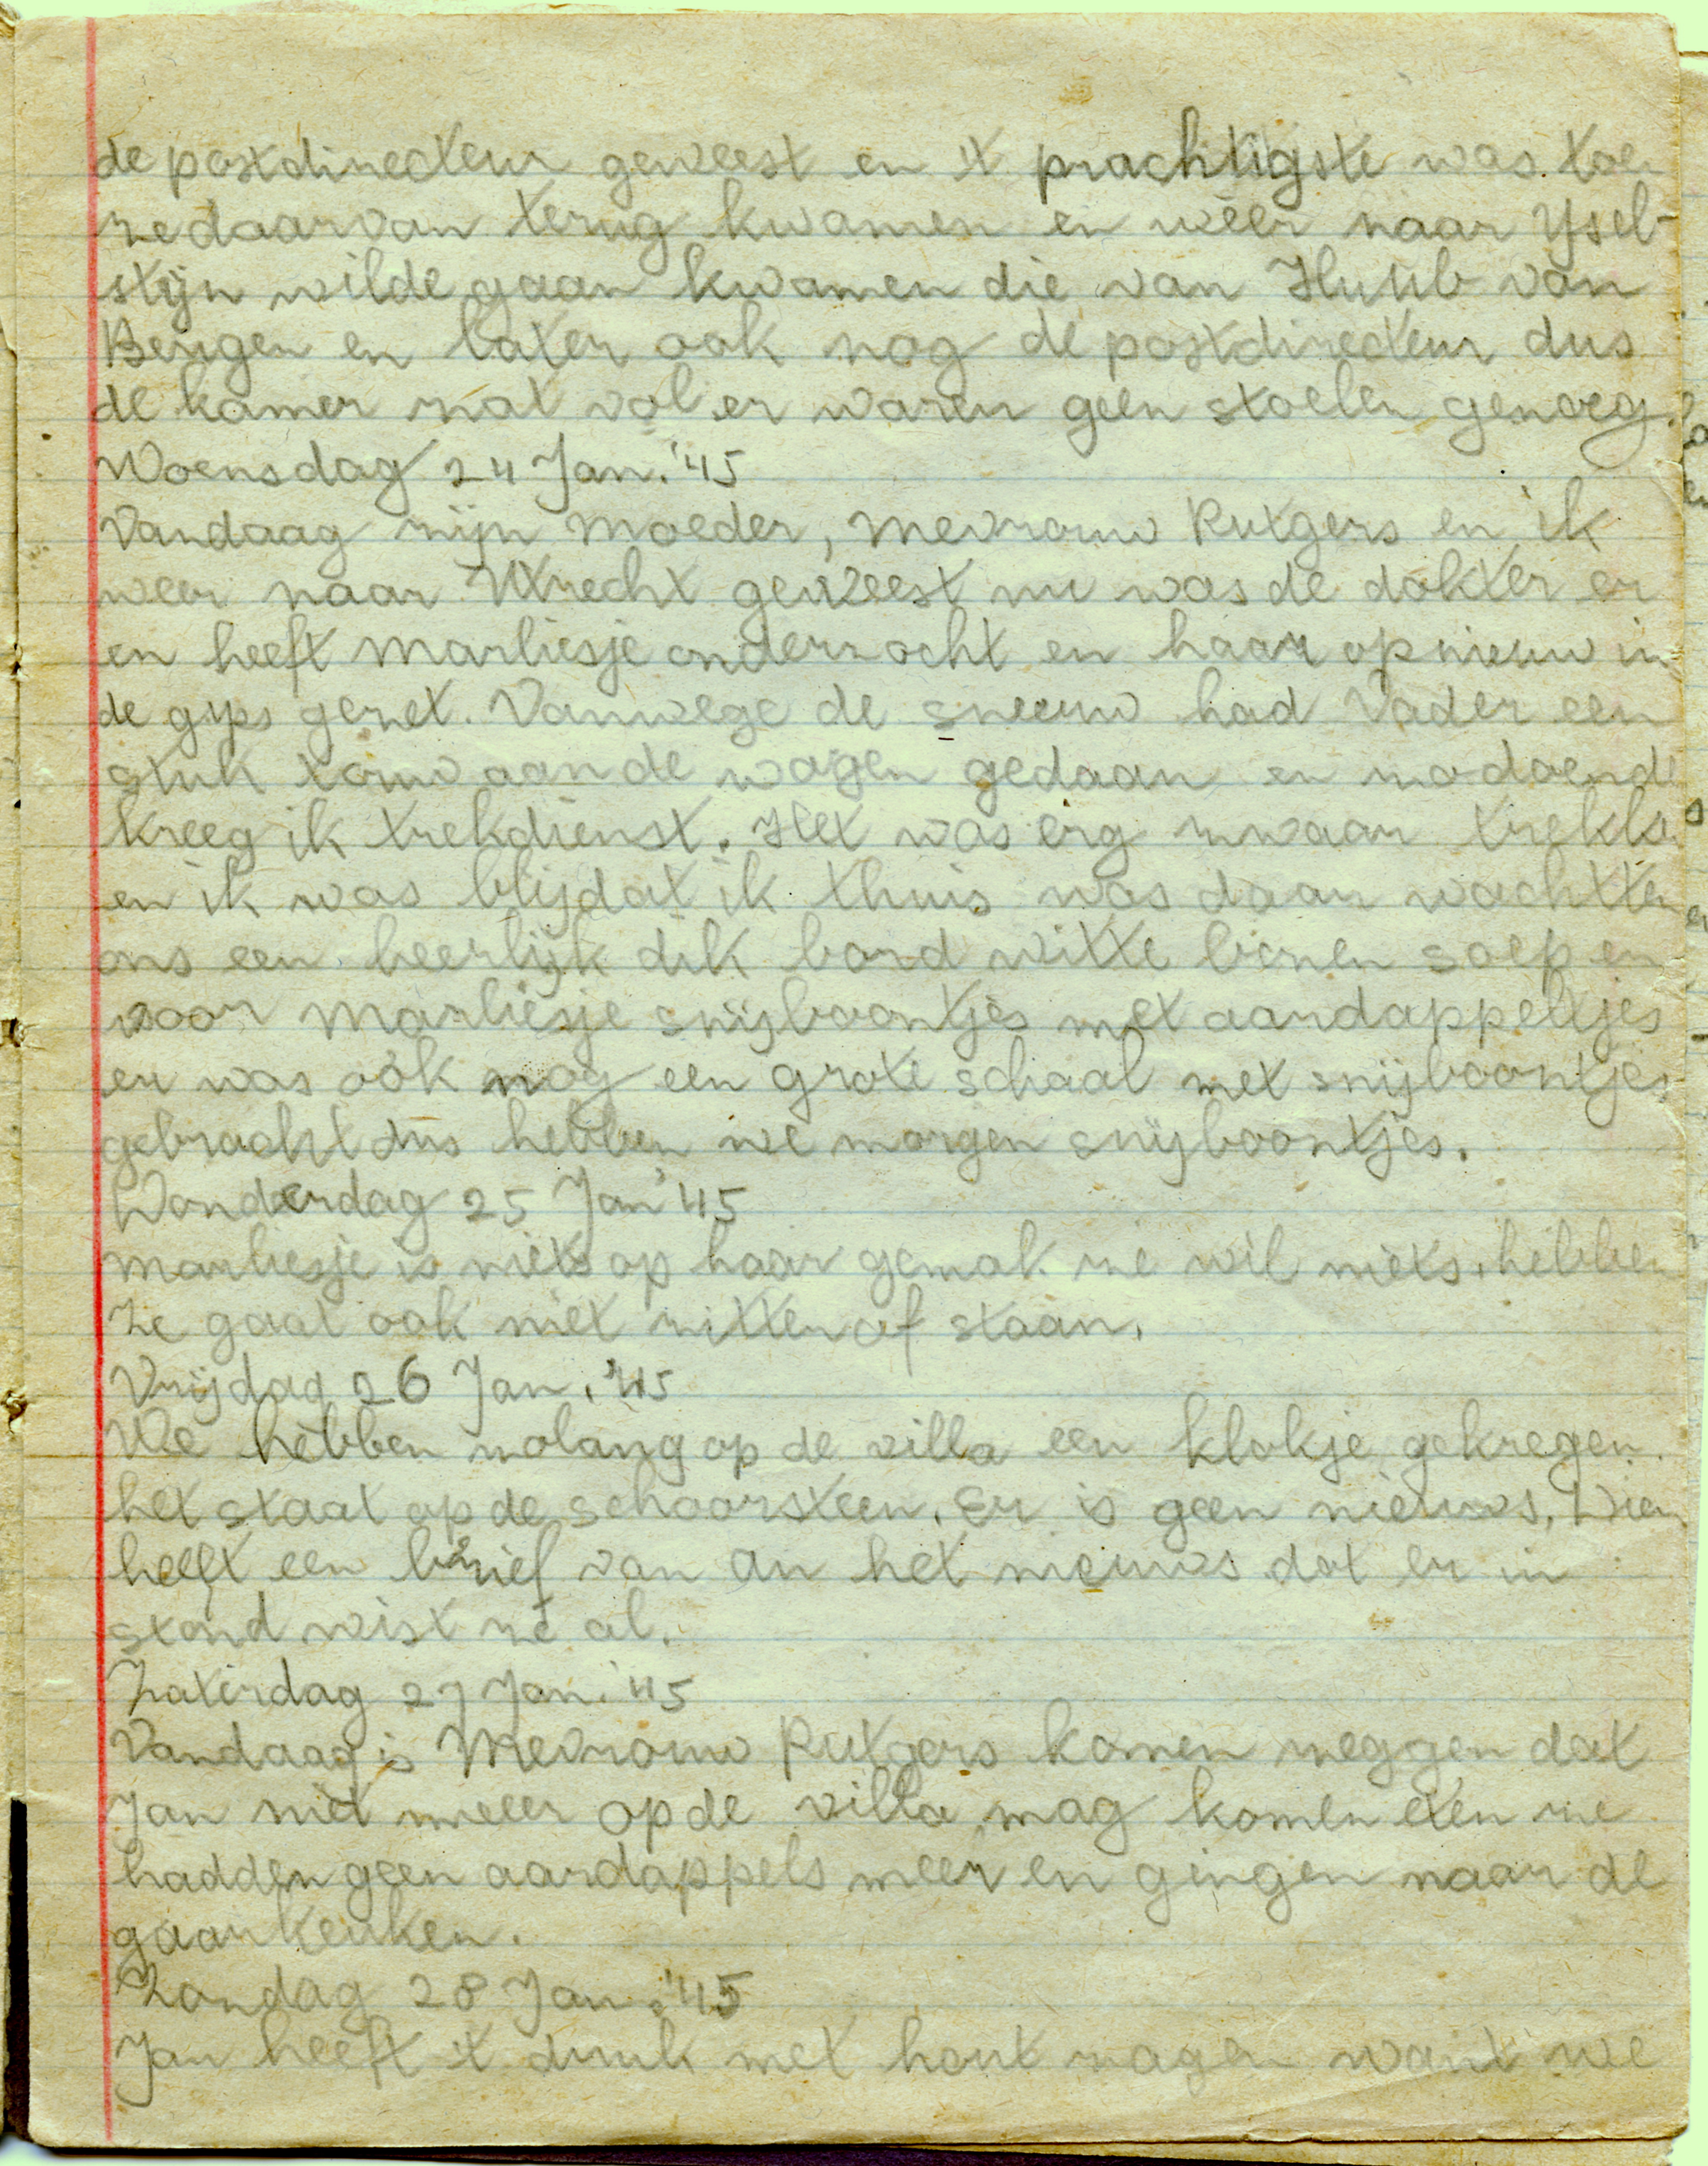 de postdirecteur geweest en 't prachtigste was toe
ze daarvan terug kwamen en wéér naar Ysel-
stijn wilde gaan kwamen die van Huub van
Bergen en later ook nog de postdirecteur dus
de kamer zat vol er waren geen stoelen genoeg.
Woensdag 24 Jan. '45
Vandaag zijn Moeder, Mevrouw Rutgers en ik
weer naar Utrecht geweest nu was de dokter er
en heeft Marliesje onderzocht en haar opnieuw in
de gips gezet. Vanwege de sneeuw had Vader een
stuk touw aan de wagen gedaan en zo doende
kreeg ik trekdienst. Het was erg zwaar trekken
en ik was blij dat ik thuis was daar wachtten
ons een heerlijk dik bord witte bonen soep en
voor Marliesje snijboontjes met aardappeltjes
er was ook nog een grote schaal met snijboontjes
gebracht dus hebben we morgen snijboontjes.
Donderdag 25 Jan '45
Marliesje is niets op haar gemak ze wil niets hebben
Ze gaat ook niet zitten of staan.
Vrijdag 26 Jan. '45
We hebben zolang op de villa een klokje gekregen
het staat op de schoorsteen. Er is geen nieuws. Dien
heeft een brief van An het nieuws dat er in
stond wist ze al.
Zaterdag 27 Jan. '45
Vandaag is Mevrouw Rutgers komen zeggen dat
Jan niet meer op de villa mag komen eten ze
hadden geen aardappels meer en gingen naar de
gaarkeuken.
Zondag 28 Jan. '45
Jan heeft 't druk met hout zagen want we